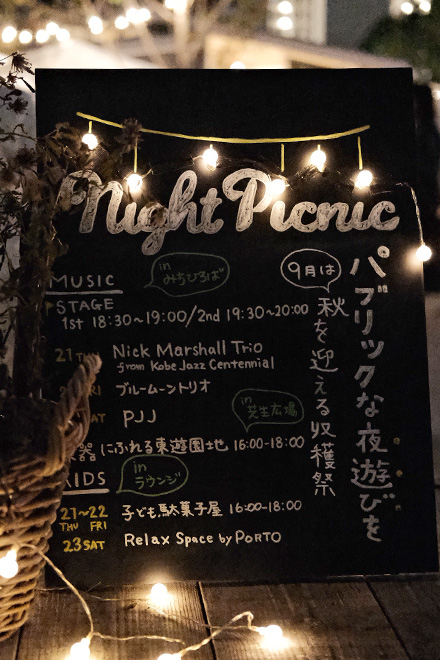 Night Picnic
パブリックな夜遊びを
9月は
秋を迎える収穫祭
in みちひろば
MUSIC
STAGE
1st 18:30~19:00/2nd 19:30~20:00
21 Nick Marshall Trio
from Kobe Jazz Centennial
ブルームーントリオ
PJJ
in 芝生広場
にふれる東遊園地 16:00-18:00
KIDS
in ラウンジ
21~22 子ども駄菓子屋 16:00-18:00
THU FRI
23 SAT Relax Space by PORTO